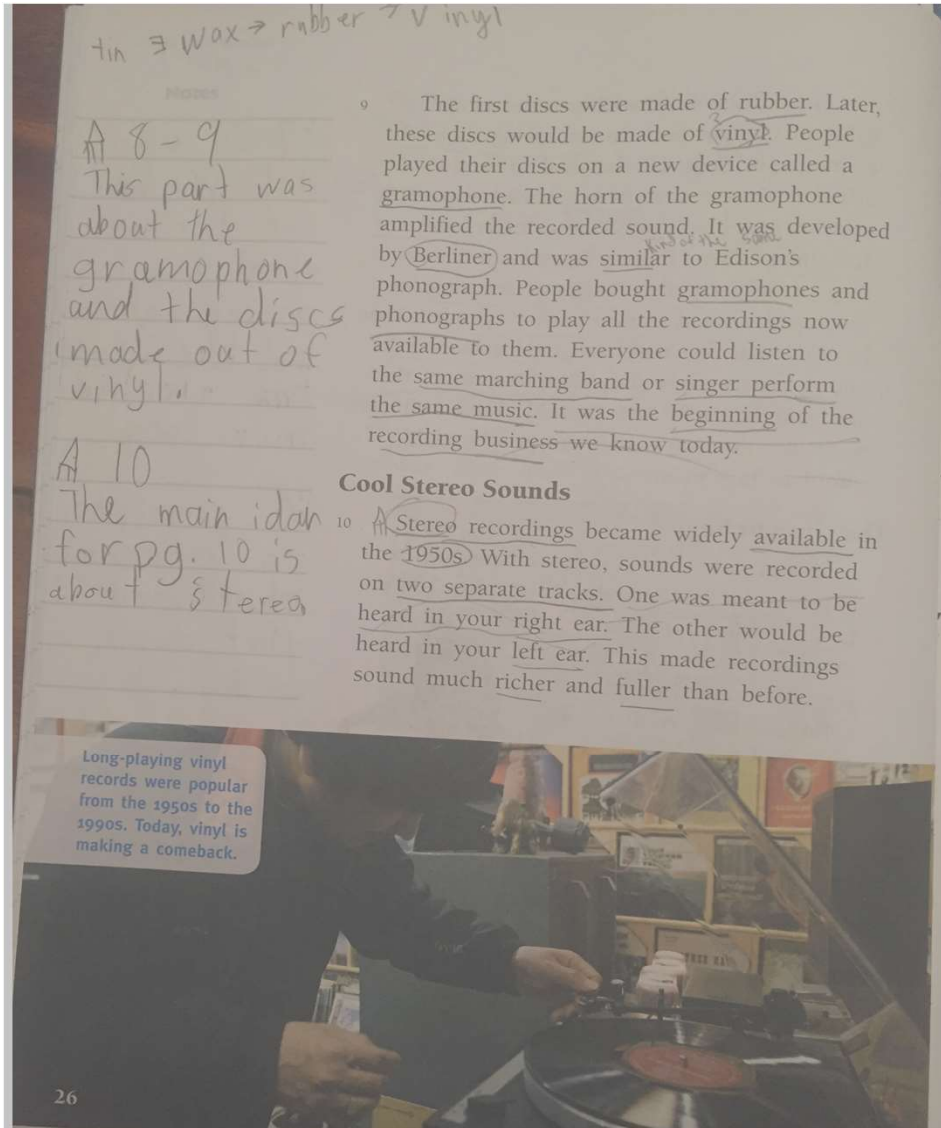 tin → wax → rubber → vinyl
Notes
A 8 - 9
This part was
about the
gramophone
and the discs
made out of
vinyl.
A 10
The main idah
for pg. 10 is
about stereo
9 The first discs were made of rubber. Later,
these discs would be made of vinyl. People
played their discs on a new device called a
gramophone. The horn of the gramophone
amplified the recorded sound. It was developed
kind of the same
by Berliner and was similar to Edison's
phonograph. People bought gramophones and
phonographs to play all the recordings now
available to them. Everyone could listen to
the same marching band or singer perform
the same music. It was the beginning of the
recording business we know today.
Cool Stereo Sounds
10 A Stereo recordings became widely available in
the 1950s. With stereo, sounds were recorded
on two separate tracks. One was meant to be
heard in your right ear. The other would be
heard in your left ear. This made recordings
sound much richer and fuller than before.
Long-playing vinyl
records were popular
from the 1950s to the
1990s. Today, vinyl is
making a comeback.
26